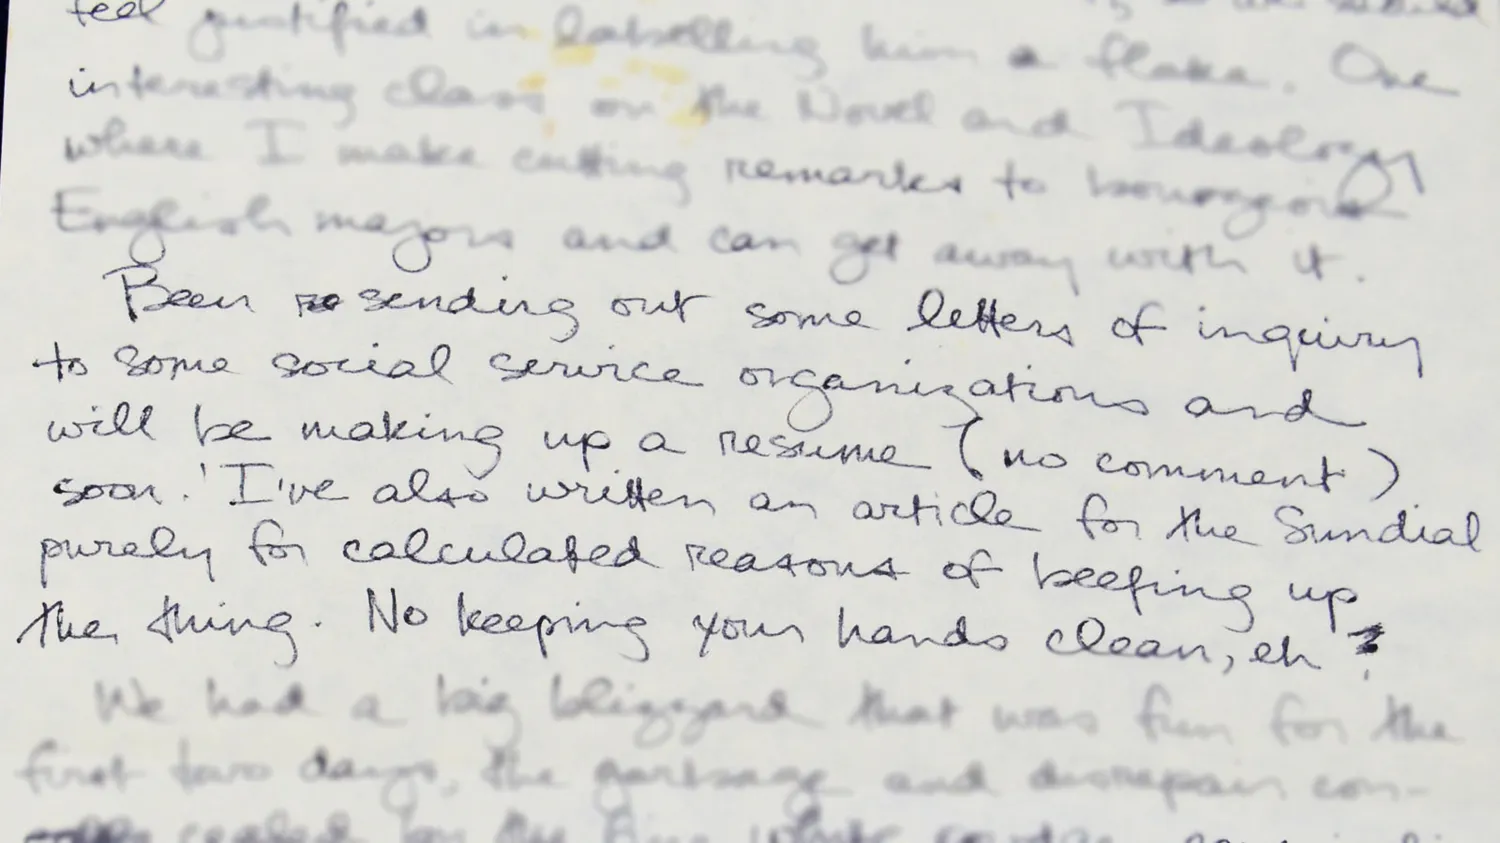 feel justified in labelling him a flake. One
interesting class on the Novel and Ideology
where I make cutting remarks to bourgeois
English majors and can get away with it.
Been sending out some letters of inquiry
to some social service organizations and
will be making up a resume (no comment)
soon. I've also written an article for the Sundial
purely for calculated reasons of beefing up
the thing. No keeping your hands clean, eh?
We had a big blizzard that was fun for the
first two days, the garbage and disrepair con-
sealed by the fine white